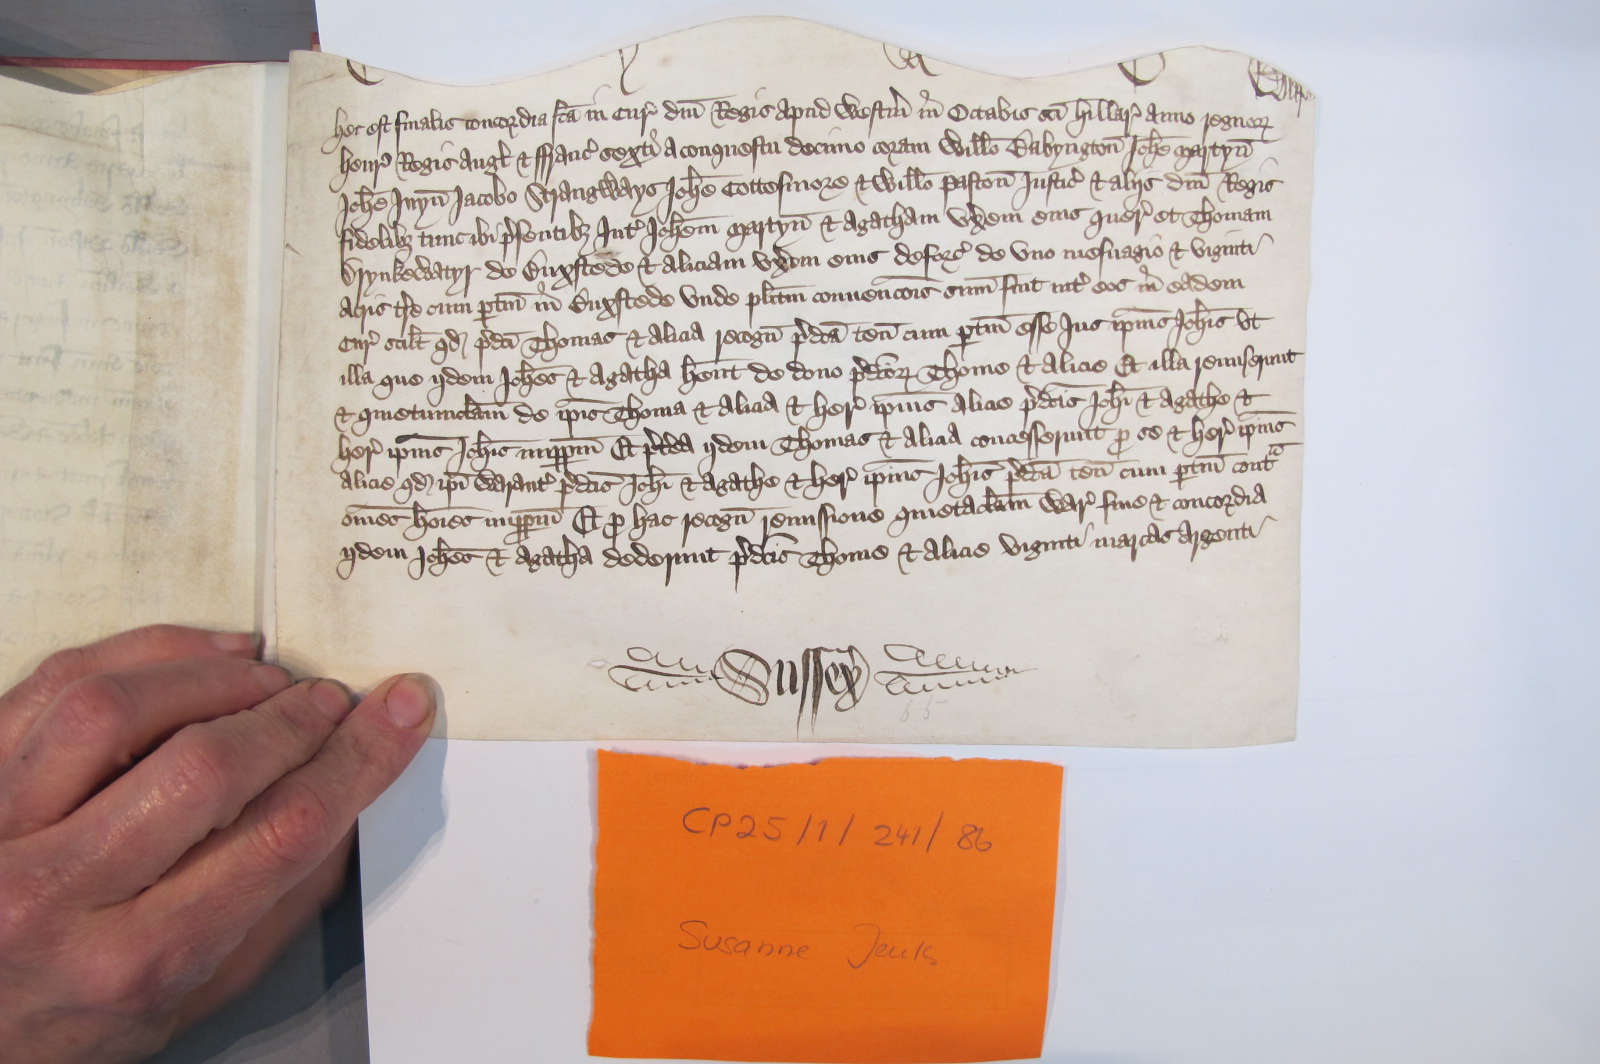 hec est finalis concordia fc̄a in Cur̉ dn̄i Regis apud Westm̄ in Octabis sc̄i hillar̉ anno regnoꝝ
henr̉ Regis angl̉ & ffranc̉ sexti a conquestu decimo coram Will̄o Babyngton̄ Joh̄e Martyn̄
Joh̄e Juyn̄ Jacobo Strangways Joh̄e Cottesmore & Will̄o paston̄ Justic̉ & aliis dn̄i Regis
fidelibꝫ tunc ibi p̉sentibꝫ Int̉ Joh̄em Martyn̄ & Agatham vx̄em eius quer̉ et Thomam
Drynkewatyr de Buxstede & aliciam vx̄em eius deforc̉ de vno mesuagio & viginti
acris t̄re cum p̄tin̄ in Buxstede vnde pl̄itm̄ convenc̄ois sum̄ fuit int̉ eos in eadem
Cur̉ scil̄t qd̉ p̉dc̄i Thomas & Alicia recogn̄ p̉dc̄a ten̄ cum p̄tin̄ esse Jus ip̄ius Joh̄is vt
illa que ijdem Joh̄es & Agatha hent̄ de dono p̉dc̄oꝝ Thome & Alicie Et illa remiserunt
& quietumclam̄ de ip̄is Thoma & Alicia & her̉ ip̄ius Alicie p̉dc̄is Joh̄i & Agathe &
her̉ ip̄ius Joh̄is imp̄p̄m̄ Et p̉t̄ea ijdem Thomas & Alicia concesserunt ꝑ se & her̉ ip̄ius
Alicie qd̉ ip̄i Warant̉ p̉dc̄is Joh̄i & Agathe & her̉ ip̄ius Joh̄is p̉dc̄a ten̄ cum p̄tin̄ contᵃ
om̄es ho̅ies imp̄p̄m̄ Et ꝑ hac recogn̄ remissione quietaclam̄ War̉ fine & concordia
ijdem Joh̄es & Agatha dederunt p̉dc̄is Thome & Alicie viginti marcas argenti
Sussex̉
65
CP25/1/241/86
Susanne Jenks